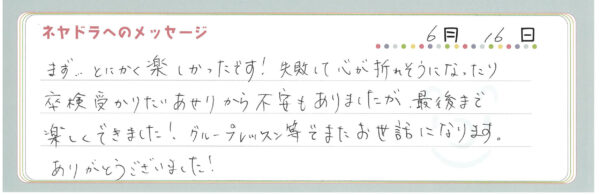 ネヤドラへのメッセージ
6月 16日
まず…とにかく楽しかったです！失敗して心が折れそうになったり
卒検受かりたいあせりから不安もありましたが、最後まで
楽しくできました！グループレッスン等でまたお世話になります。
ありがとうございました！